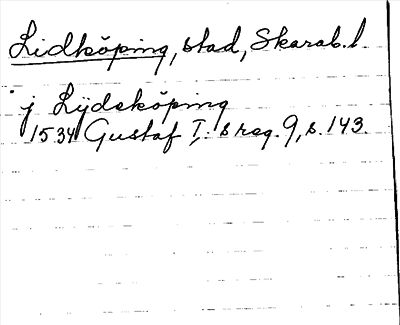 Lidköping, stad, Skarab. l.
j Lijdsköping
1534 Gustaf I:s reg. 9, s. 143.